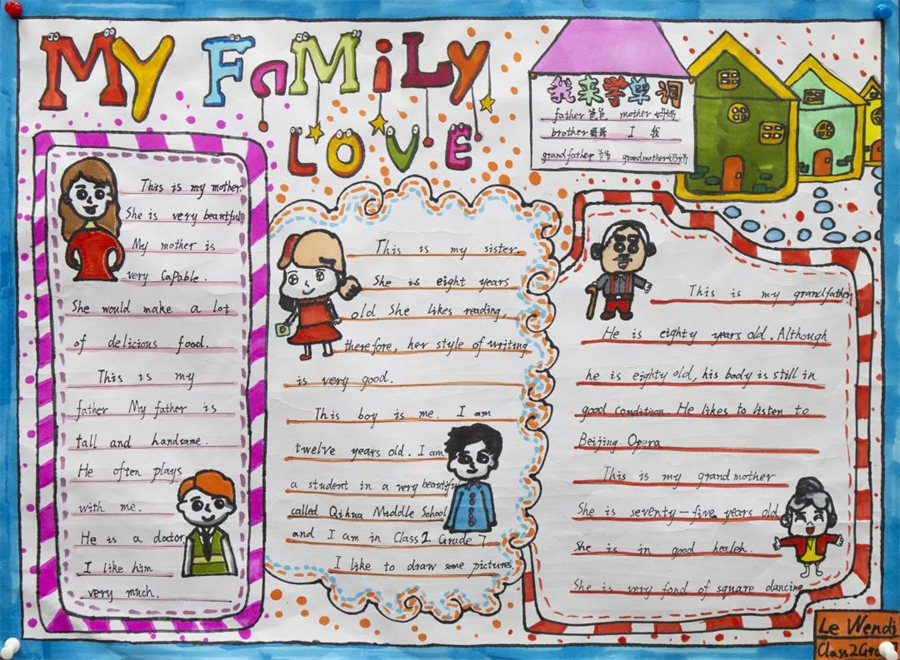 My FaMiLy
LOVE
我来学单词
father 爸爸 mother 妈妈
brother 哥哥 I 我
grandfather 爷爷 grandmother 奶奶
This is my mother.
She is very beautiful
My mother is
very capable.
She would make a lot
of delicious food.
This is my
father My father is
tall and handsome.
He often plays
with me.
He is a doctor.
I like him
very much.
This is my sister
She is eight years
old She likes reading,
therefore, her style of writing
is very good.
This boy is me. I am
twelve years old. I am
a student in a very beautiful
called Qihua Middle School
and I am in Class2 Grade 7
I like to draw some pictures
This is my grandfather
He is eighty years old. Although
he is eighty old, his body is still in
good condition He likes to listen to
Beijing Opera
This is my grandmother
She is seventy-five years old
She is in good healeh.
She is very fond of square dancing
Le Wendi
Class2Gra